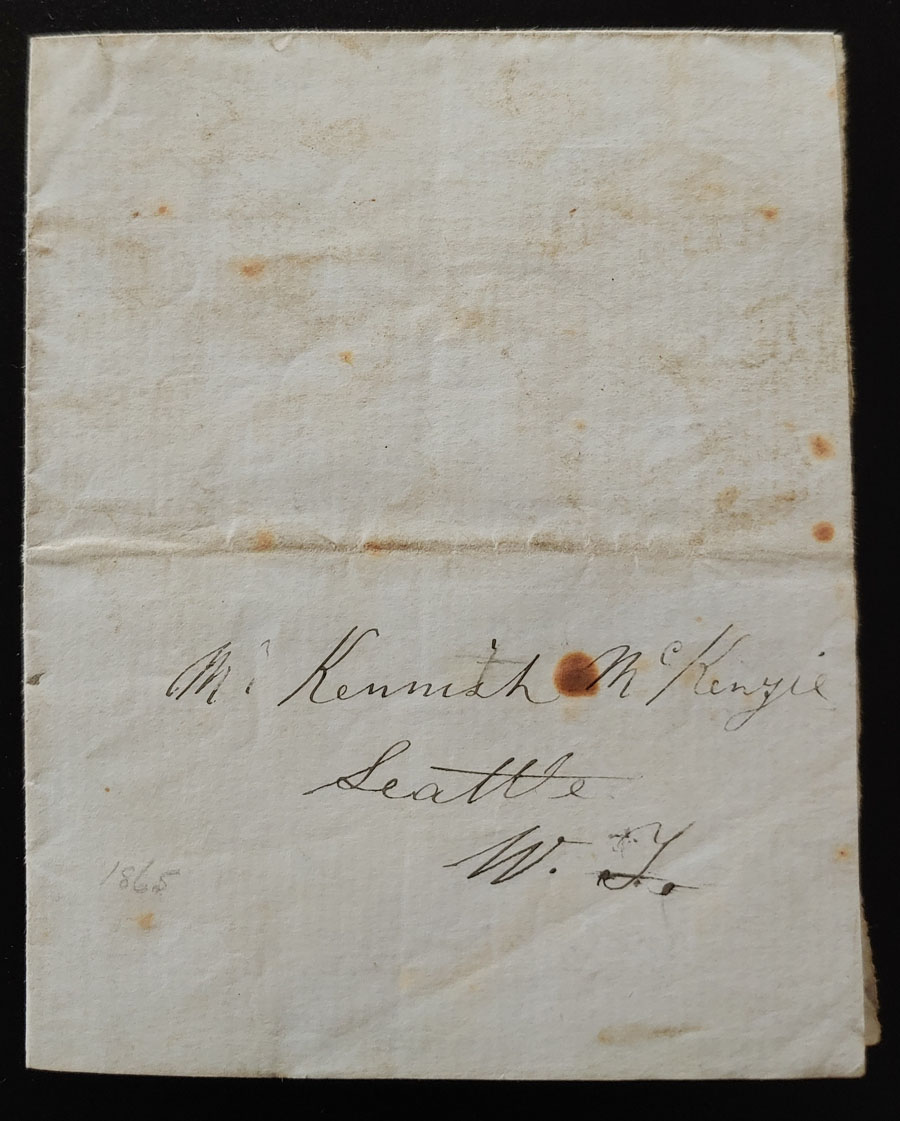 Mr Kennith McKenzie
Seattle
W. T.
1865